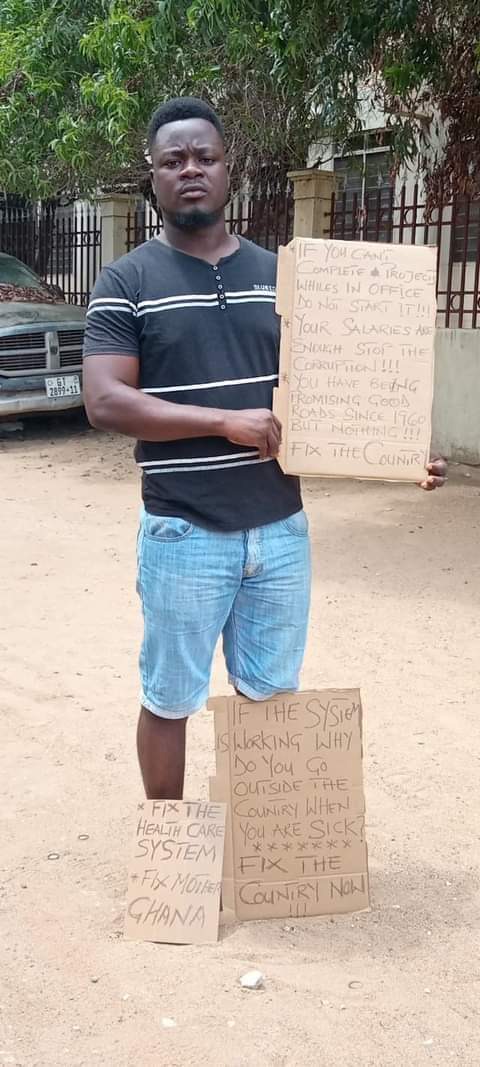 BLUEE
GT
2899-11
*IF YOU CAN'T
COMPLETE A PROJECT
WHILES IN OFFICE
DO NOT START IT!!!
* YOUR SALARIES ARE
ENOUGH STOP THE
CORRUPTION!!!
* YOU HAVE BEING
PROMISING GOOD
ROADS SINCE 1960
BUT NOTHING!!!
FIX THE COUNTRY
IF THE SYSTEM
IS WORKING WHY
DO YOU GO
OUTSIDE THE
COUNTRY WHEN
YOU ARE SICK?
*******
FIX THE
COUNTRY NOW
!!!
* FIX THE
HEALTH CARE
SYSTEM
* FIX MOTHER
GHANA